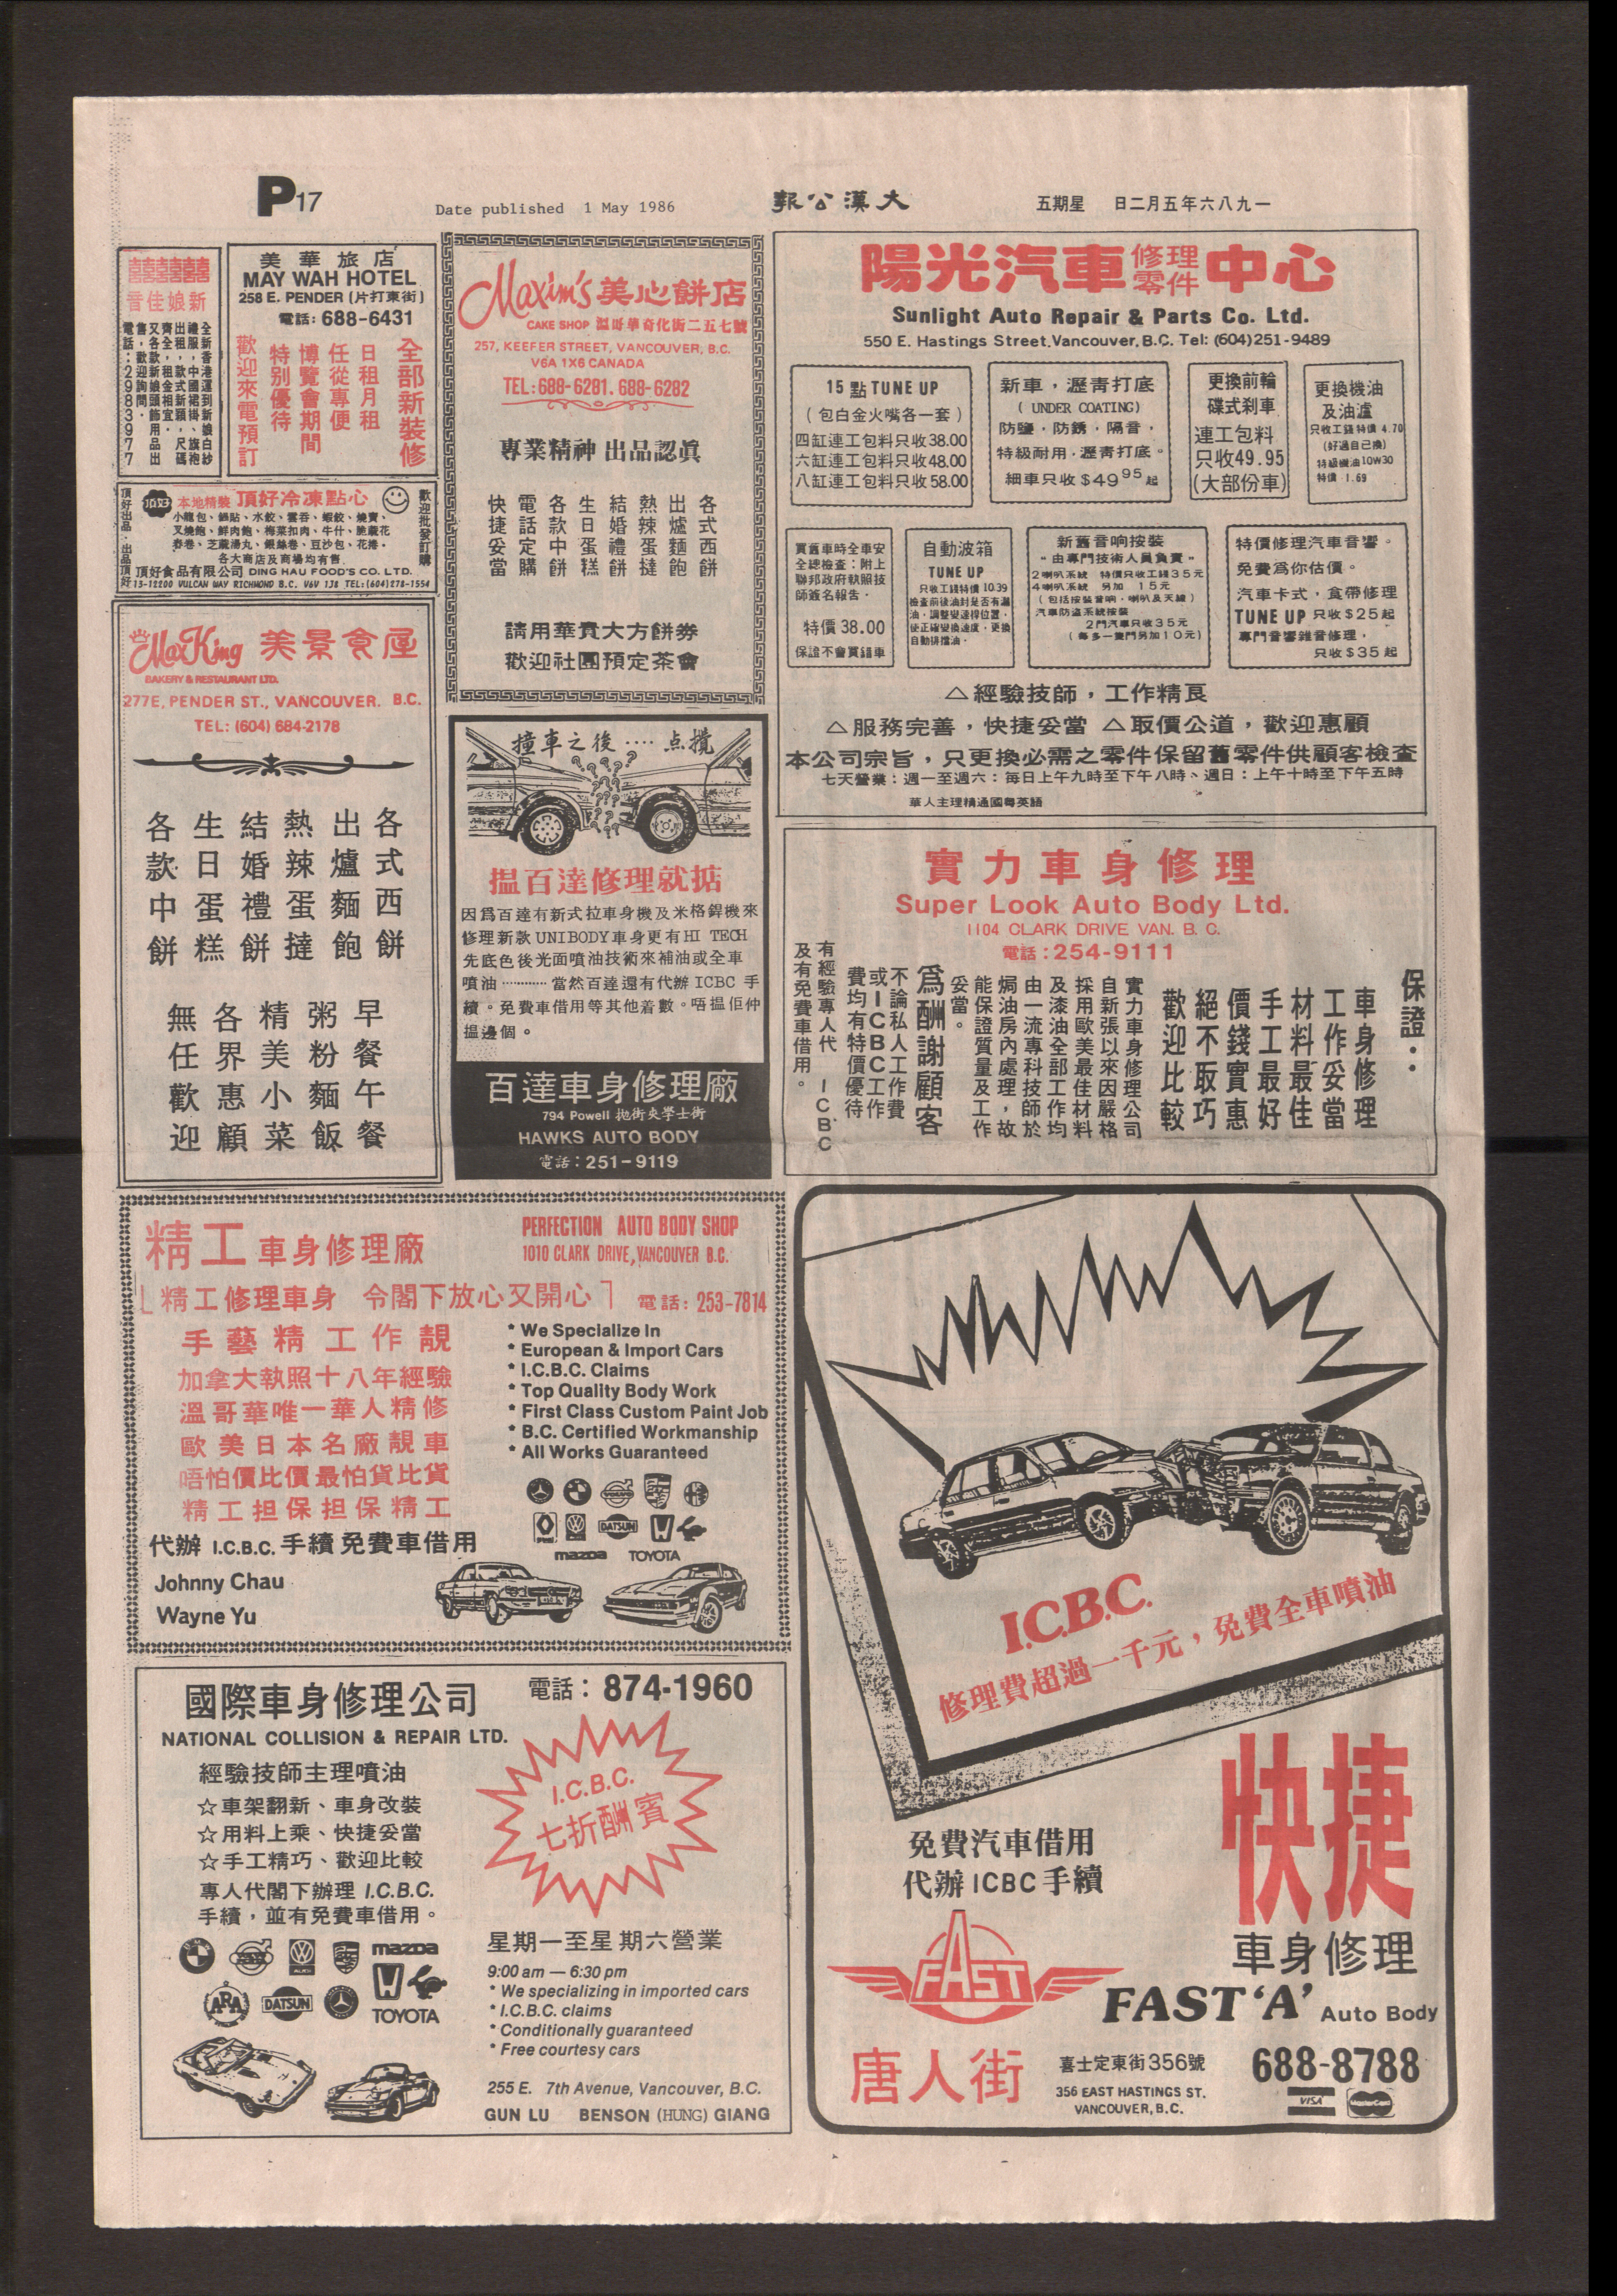 P17
Date published 1 May 1986
報公漢大
五期星 日二月五年六八九一
囍囍囍囍囍
音佳娘新
全新香港運到新娘白紗
禮服，中國裙掛、旗袍
出租，款式新穎，尺碼
齊全，租金相宜。
又各款新娘頭飾用品出
售，歡迎詢問。
電話：2983977
美華旅店
MAY WAH HOTEL
258 E. PENDER (片打東街)
電話: 688-6431
全部新裝修
日租月租
任從專便
博覽會期間
特别優待
歡迎來電預訂
頂好出品．出品頂好
頂好
本地精裝 頂好冷凍點心
歡迎批發訂購
小籠包、鍋貼、水餃、雲吞、蝦餃、燒賣、
叉燒飽、鮮肉飽、梅菜扣肉、牛什、脆蔴花
春卷、芝蔴湯丸、銀絲卷、豆沙包、花捲。
各大商店及商場均有售
頂好食品有限公司 DING HAU FOOD'S CO. LTD.
13-12200 VULCAN WAY RICHMOND B.C. V6V 1J8 TEL:(604)278-1554
Maxim's 美心餅店
CAKE SHOP 溫哥華奇化街二五七號
257, KEEFER STREET, VANCOUVER, B.C.
V6A 1X6 CANADA
TEL: 688-6281. 688-6282
專業精神 出品認眞
各式西餅
出爐麵飽
熱辣蛋撻
結婚禮餅
生日蛋糕
各款中餅
電話定購
快捷妥當
請用華貴大方餅券
歡迎社團預定茶會
陽光汽車修理零件中心
Sunlight Auto Repair & Parts Co. Ltd.
550 E. Hastings Street, Vancouver, B.C. Tel: (604)251-9489
15 點 TUNE UP
(包白金火嘴各一套)
四缸連工包料只收38.00
六缸連工包料只收48.00
八缸連工包料只收58.00
新車，瀝青打底
( UNDER COATING)
防鹽．防銹．隔音，
特級耐用．瀝青打底。
細車只收 $49.95 起
更換前輪
碟式刹車
連工包料
只收49.95
(大部份車)
更換機油
及油濾
只收工錢特價 4.70
(好過自己換)
特級機油10W30
特價 1.69
買舊車時全車安
全總檢查：附上
聯邦政府執照技
師簽名報告．
特價 38.00
保證不會買錯車
自動波箱
TUNE UP
只收工錢特價 10.39
檢查前後油封是否有漏
油．調整變速桿位置．
使正確變換速度．更換
自動排擋油．
新舊音响按裝
"由專門技術人員負責"
2喇叭系統 特價只收工錢35元
4喇叭系統 另加 15元
(包括按裝音响．喇叭及天線)
汽車防盜系統按裝
2門汽車只收35元
(每多一隻門另加10元)
特價修理汽車音響。
免費爲你估價。
汽車卡式，食帶修理
TUNE UP 只收$25起
專門音響雜音修理．
只收$35起
△經驗技師，工作精良
△服務完善，快捷妥當 △取價公道，歡迎惠顧
本公司宗旨，只更換必需之零件保留舊零件供顧客檢查
七天營業：週一至週六：每日上午九時至下午八時、週日：上午十時至下午五時
華人主理精通國粵英語
MaxKing 美景食屋
BAKERY & RESTAURANT LTD.
277E, PENDER ST., VANCOUVER. B.C.
TEL: (604) 684-2178
各式西餅
出爐麵飽
熱辣蛋撻
結婚禮餅
生日蛋糕
各款中餅
早餐午餐
粥粉麵飯
精美小菜
各界惠顧
無任歡迎
撞車之後····点攪
搵百達修理就掂
因爲百達有新式拉車身機及米格銲機來
修理新款 UNIBODY車身更有HI TECH
先底色後光面噴油技術來補油或全車
噴油············當然百達還有代辦 ICBC 手
續。免費車借用等其他着數。唔搵佢仲
搵邊個。
百達車身修理廠
794 Powell 抛街夾學士街
HAWKS AUTO BODY
電話：251-9119
實力車身修理
Super Look Auto Body Ltd.
1104 CLARK DRIVE VAN. B. C.
電話：254-9111
保證：
車身修理
工作妥當
材料最佳
手工最好
價錢實惠
絕不取巧
歡迎比較
實力車身修理公司
自新張以來因嚴格
採用歐美最佳材料
及漆油全部工作均
由一流專科技師於
焗油房內處理，故
能保證質量及工作
妥當。
爲酬謝顧客
不論私人工作費
或ICBC工作
費均有特價優待
有經驗專人代 ICBC
及有免費車借用。
精工車身修理廠
PERFECTION AUTO BODY SHOP
1010 CLARK DRIVE, VANCOUVER B.C.
「精工修理車身 令閣下放心又開心」 電話: 253-7814
手藝精 工作靚
加拿大執照十八年經驗
溫哥華唯一華人精修
歐美日本名廠靚車
唔怕價比價最怕貨比貨
精工担保担保精工
代辦 I.C.B.C. 手續免費車借用
Johnny Chau
Wayne Yu
* We Specialize In
* European & Import Cars
* I.C.B.C. Claims
* Top Quality Body Work
* First Class Custom Paint Job
* B.C. Certified Workmanship
* All Works Guaranteed
VOLVO
DATSUN
mazda TOYOTA
國際車身修理公司
電話：874-1960
NATIONAL COLLISION & REPAIR LTD.
經驗技師主理噴油
☆車架翻新、車身改裝
☆用料上乘、快捷妥當
☆手工精巧、歡迎比較
專人代閣下辦理 I.C.B.C.
手續，並有免費車借用。
I.C.B.C.
七折酬賓
BMW
mazda
ARA
DATSUN
TOYOTA
星期一至星期六營業
9:00 am — 6:30 pm
* We specializing in imported cars
* I.C.B.C. claims
* Conditionally guaranteed
* Free courtesy cars
255 E. 7th Avenue, Vancouver, B.C.
GUN LU BENSON (HUNG) GIANG
I.C.B.C.
修理費超過一千元，免費全車噴油
快捷
免費汽車借用
代辦ICBC手續
車身修理
FAST
FAST 'A' Auto Body
唐人街
喜士定東街356號
356 EAST HASTINGS ST.
VANCOUVER, B.C.
688-8788
VISA
MasterCard